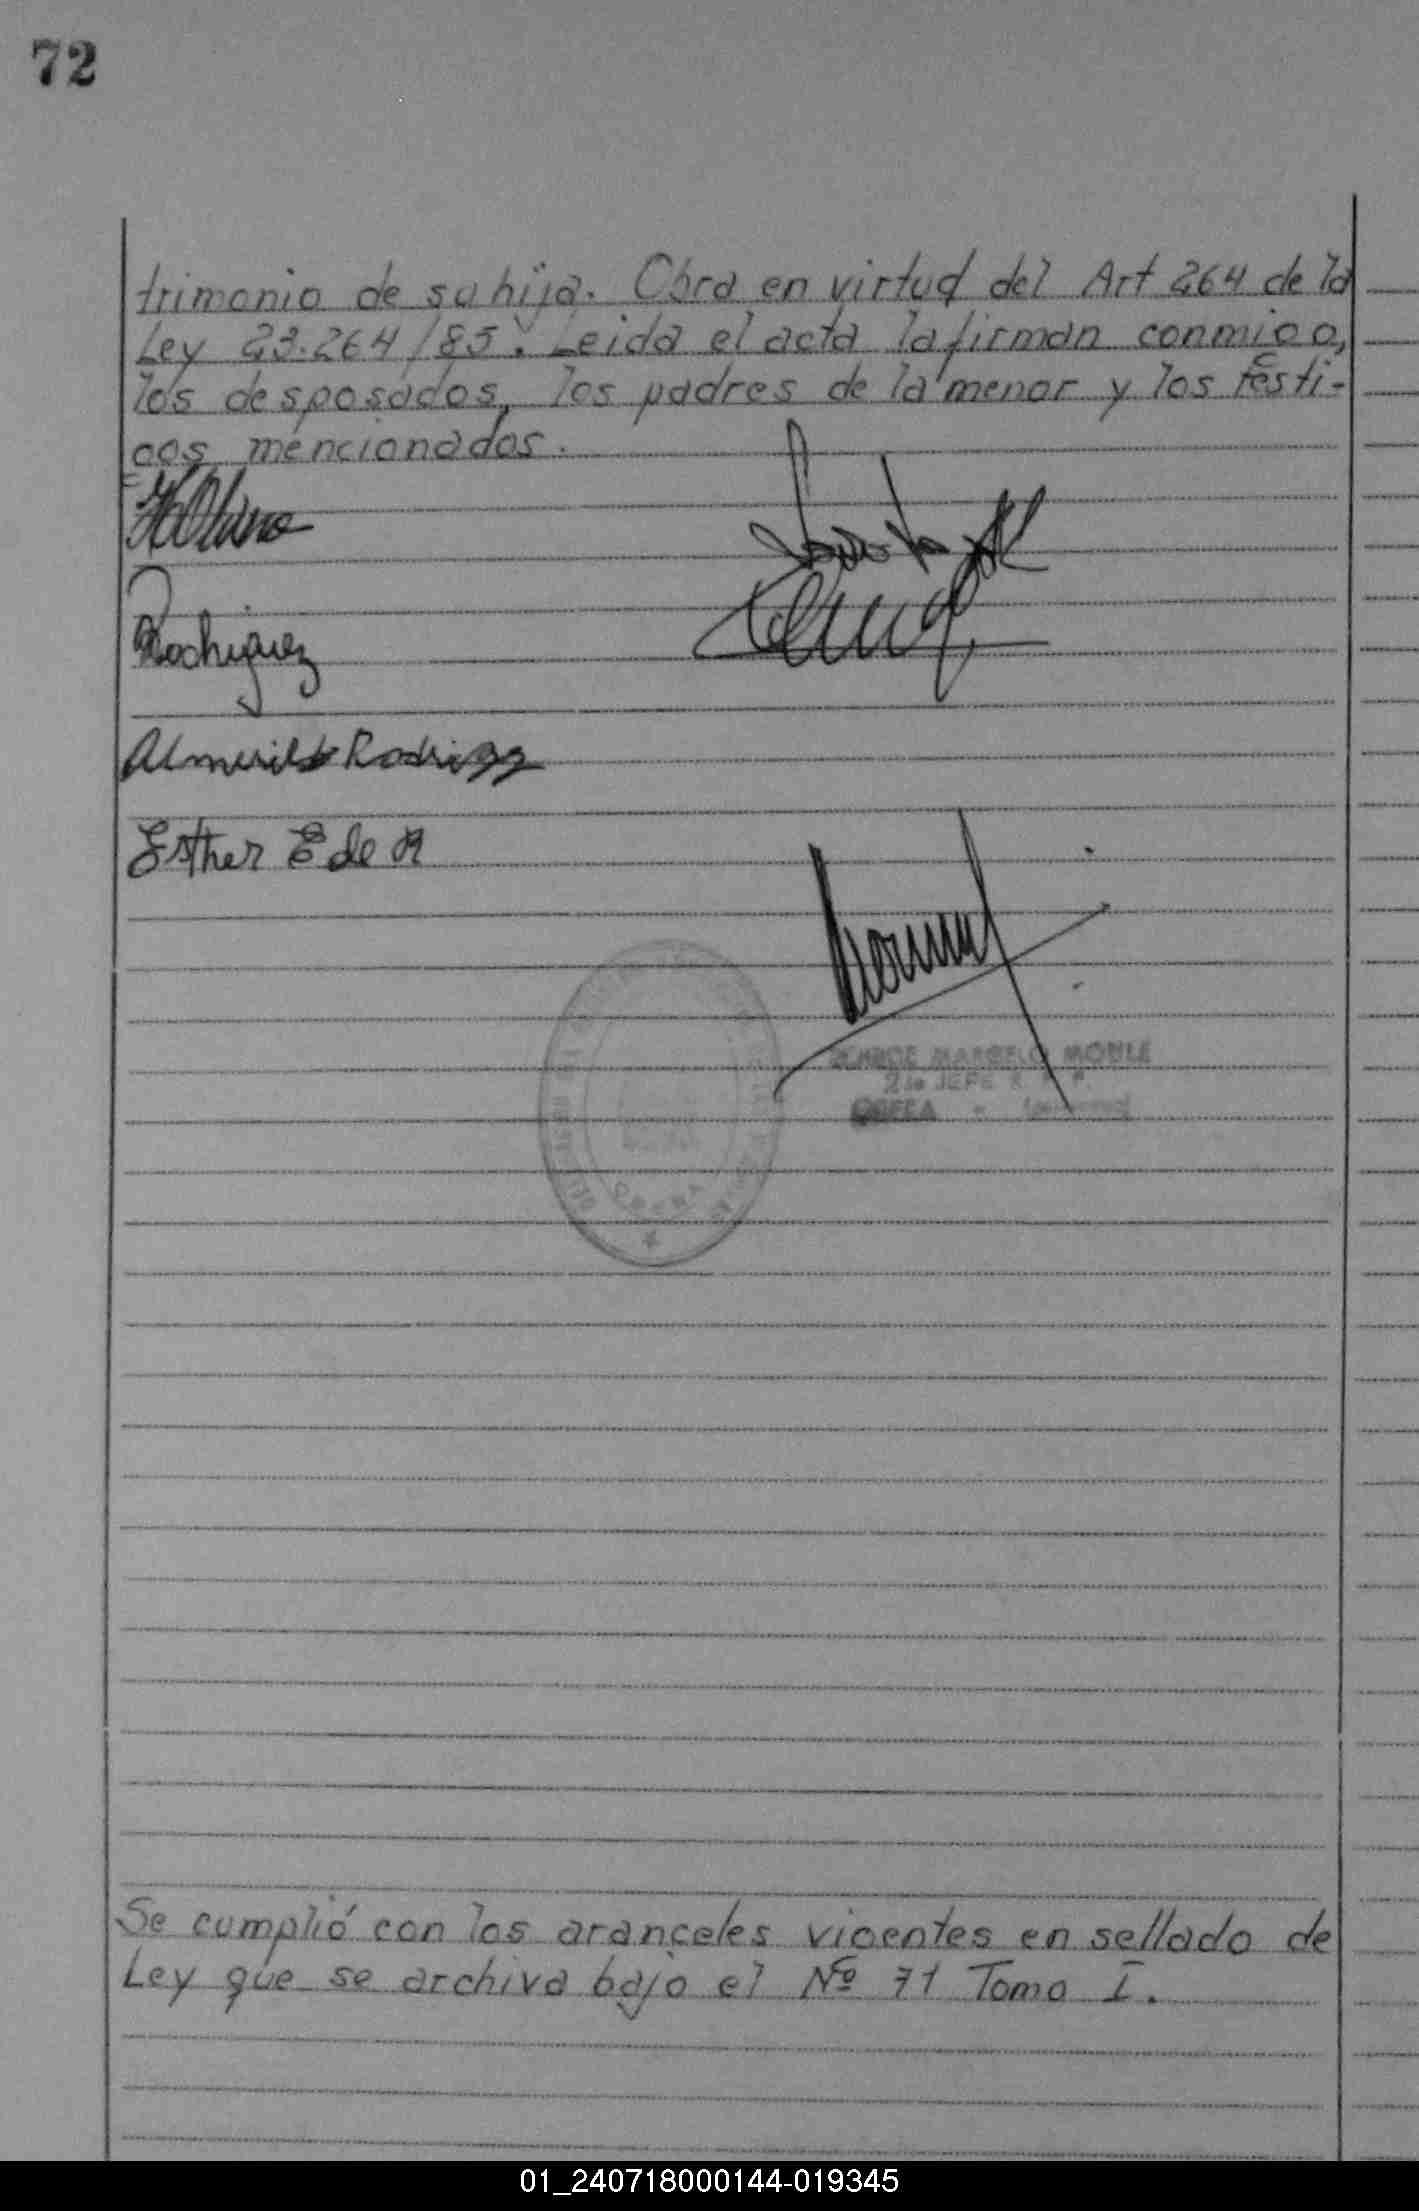 72
trimonio de su hija. Obra en virtud del Art 264 de la
Ley 23.264/85. Leida el acta la firman conmigo,
los desposados, los padres de la menor y los testi-
gos mencionados.
Rodriguez
Almerildo Rodriguez
Esther E de R
MARCELO MOULE
2do JEFE R. P.
OBERA
OBERA
Se cumplió con los aranceles vigentes en sellado de
Ley que se archiva bajo el Nº 71 Tomo I.
01_240718000144-019345